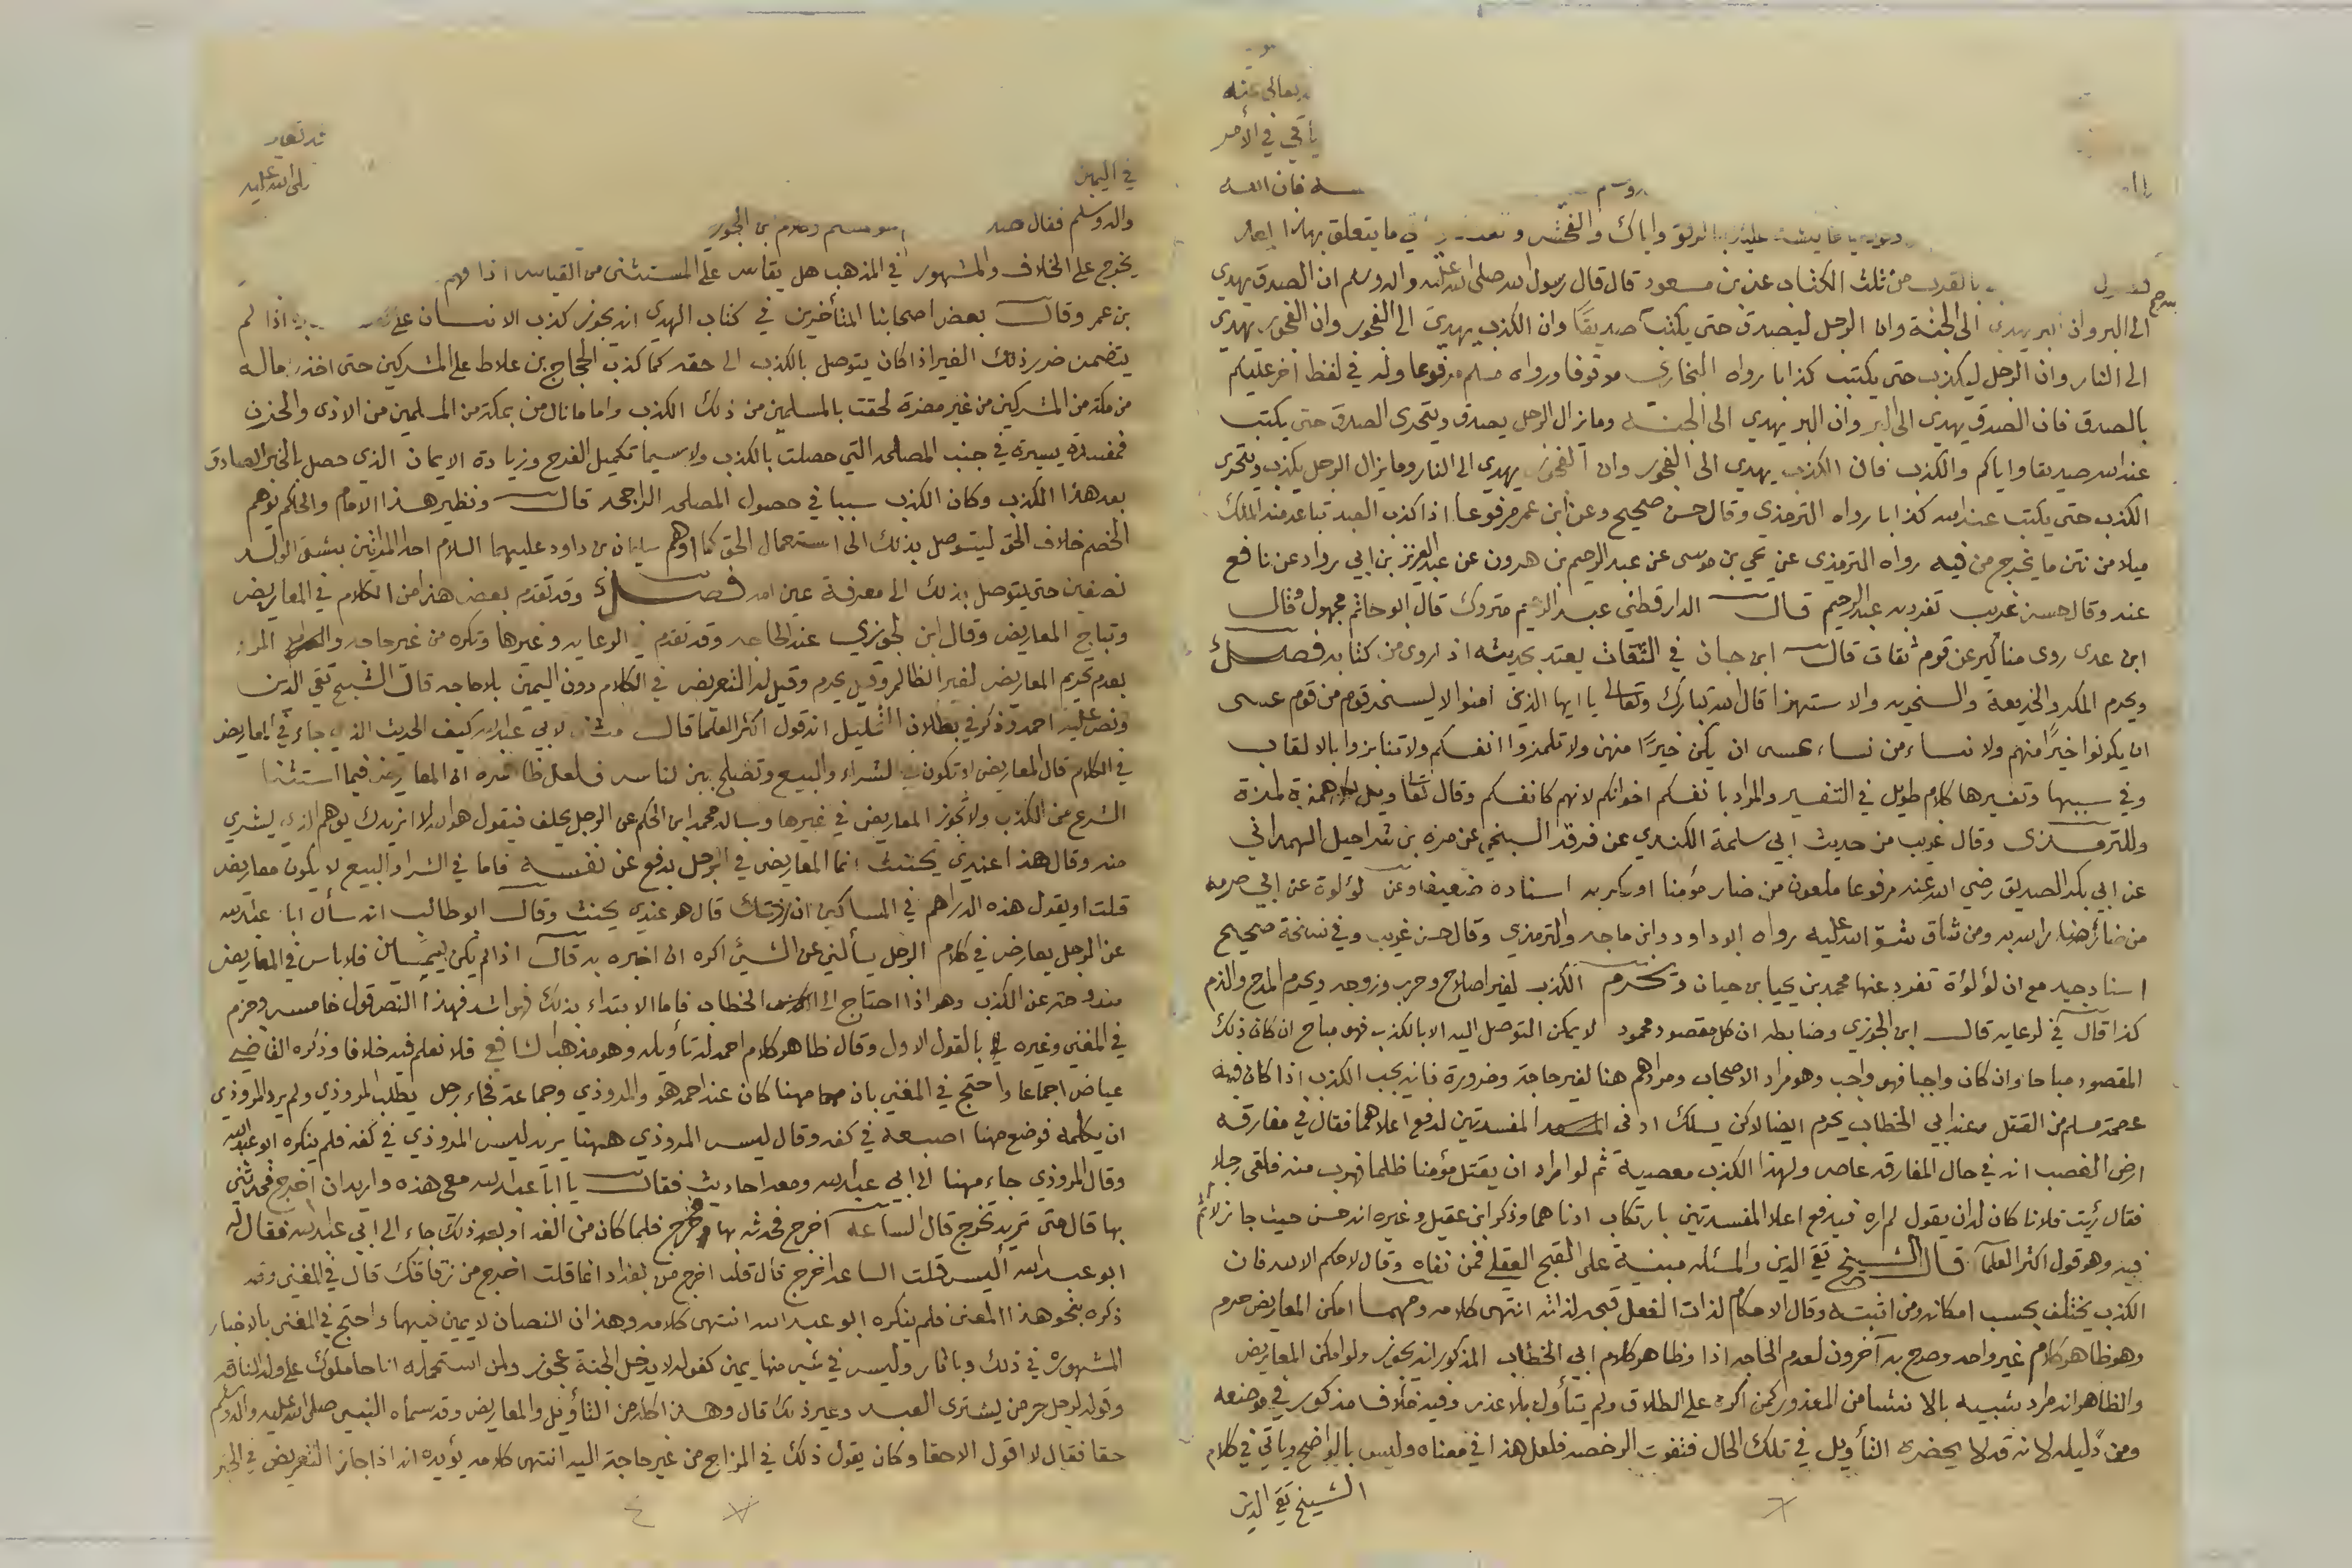 تعالى عنه
يأتي في الأمر
فان الله
واياك والفحش في ما يتعلق بهذا
بالقرب من ثلث الكتاب عن بن مسعود قال قال رسول الله صلى الله عليه واله وسلم ان الصدق يهدي
الى البر وان البر يهدي الى الجنة وان الرجل ليصدق حتى يكتب صديقا وان الكذب يهدي الى الفجور وان الفجور يهدي
الى النار وان الرجل ليكذب حتى يكتب كذابا رواه البخاري موقوفا ورواه مسلم مرفوعا وله في لفظ اخر عليكم
بالصدق فان الصدق يهدي الى البر وان البر يهدي الى الجنة وما يزال الرجل يصدق ويتحرى الصدق حتى يكتب
عند الله صديقا واياكم والكذب فان الكذب يهدي الى الفجور وان الفجور يهدي الى النار وما يزال الرجل يكذب ويتحرى
الكذب حتى يكتب عند الله كذابا رواه الترمذي وقال حسن صحيح وعن ابن عمر مرفوعا اذا كذب العبد تباعد منه الملك
ميلا من نتن ما يخرج من فيه رواه الترمذي عن يحيى بن موسى عن عبد الرحيم بن هرون عن عبد العزيز بن ابي رواد عن نافع
عنه وقال حسن غريب تفرد به عبد الرحيم قال الدارقطني عبد الرحيم متروك قال ابو حاتم مجهول وقال
ابن عدى روى مناكير عن قوم ثقات قال ابن حبان في الثقات يعتبر بحديثه اذا روى من كتابه فصل
ويحرم المكر والخديعة والسخرية والاستهزا قال الله تبارك وتعالى يا ايها الذين امنوا لا يسخر قوم من قوم عسى
ان يكونوا خيرا منهم ولا نساء من نساء عسى ان يكن خيرا منهن ولا تلمزوا انفسكم ولا تنابزوا بالالقاب
وفي سببها وتفسيرها كلام طويل في التفسير والمراد بانفسكم اخوانكم لانهم كانفسكم وقال تعالى ويل لكل همزة لمزة
وللترمذي وقال غريب من حديث ابي سلمة الكندي عن فرقد السبخي عن مرة بن شراحيل الهمداني
عن ابي بكر الصديق رضي الله عنه مرفوعا ملعون من ضار مؤمنا او مكر به اسناده ضعيف وعن لؤلؤة عن ابي صرمه
من ضار ضار الله به ومن شاق شق الله عليه رواه ابو داود وابن ماجه والترمذي وقال حسن غريب وفي نسخة صحيح
اسناد جيد مع ان لؤلؤة تفرد عنها محمد بن يحيا بن حيان ويحرم الكذب لغير اصلاح وحرب وزوجه ويحرم المدح والذم
كذا قال في الرعايه قال ابن الجوزي وضابطه ان كل مقصود محمود لا يمكن التوصل اليه الا بالكذب فهو مباح ان كان ذلك
المقصود مباحا وان كان واجبا فهو واجب وهو مراد الاصحاب ومرادهم هنا لغير حاجة وضرورة فانه يجب الكذب اذا كان فيه
عصمة مسلم من القتل وعند ابي الخطاب يحرم ايضا لاكن يسلك ادنى المفسدتين لدفع اعلاهما فقال في مفارقه
ارض الغصب انه في حال المفارقه عاص ولهذا الكذب معصية ثم لو اراد ان يقتل مؤمنا ظلما فهرب منه فلقى رجلا
فقال رئيت فلانا كان له ان يقول لم اره فيدفع اعلا المفسدتين بارتكاب ادناهما وذكر ابن عقيل وغيره انه حسن حيث جاز لا اثم
فيه وهو قول اكثر العلما قال الشيخ تقي الدين والمسئله مبنية على القبح العقلي فمن نفاه وقال لا حكم الا لله فان
الكذب يختلف بحسب امكانه ومن اثبته وقال الاحكام لذات الفعل قبحه لذاته انتهى كلامه ومهما امكن المعاريض حرم
وهو ظاهر كلام غير واحد وصرح به آخرون لعدم الحاجه اذا وظاهر كلام ابي الخطاب المذكور انه يجوز ولو امكن المعاريض
والظاهر انه مراد تشبيه بالانشا من المعذور كمن اكره على الطلاق ولم يتأول بلا عذر وفيه خلاف مذكور في موضعه
ومن دليله لانه قد لا يحضره التأويل في تلك الحال فتفوت الرخصه فلعل هذا في معناه وليس بالواضح ويأتي في كلام
الشيخ تقي الدين
في اليمين
صلى الله عليه
واله وسلم فقال بن الجوزي
يخرج على الخلاف والمشهور في المذهب هل يقاس على المستثنى من القياس اذا فهم
بن عمر وقال بعض اصحابنا المتأخرين في كتاب الهدى انه يجوز كذب الانسان على اذا لم
يتضمن ضرر ذلك الغير اذا كان يتوصل بالكذب الى حقه كما كذب الحجاج بن علاط على المشركين حتى اخذ ماله
من مكة من المشركين من غير مضرة لحقت بالمسلمين من ذلك الكذب واما ما نال من بمكة من المسلمين من الاذى والحزن
فمفسدة يسيرة في جنب المصلحه التي حصلت بالكذب ولا سيما تكميل الفرح وزيادة الايمان الذي حصل بالخبر الصادق
بعد هذا الكذب وكان الكذب سببا في حصول المصلحه الراجحه قال ونظير هذا الامام والحاكم يوهم
الخصم خلاف الحق ليتوصل بذلك الى استعمال الحق كما اوهم سليمان بن داود عليهما السلام احد المرأتين بشق الولد
نصفين حتى يتوصل بذلك الى معرفة عين امه فصل وقد تقدم بعض هذا من الكلام في المعاريض
وتباح المعاريض وقال ابن الجوزي عند الحاجه وقد تقدم الرعايه وغيرها وتكره من غير حاجه والمراد
بعدم تحريم المعاريض لغير الظالم وقيل يحرم وقيل له التعريض في الكلام دون اليمين بلا حاجه قال الشيخ تقي الدين
ونص عليه احمد وذكر في بطلان التحليل انه قول اكثر العلما قال مثنى لابي عبد الله كيف الحديث الذي جاء في المعاريض
في الكلام قال المعاريض لا تكون في الشراء والبيع وتصلح بين الناس فلعل ظاهره ان المعاريض فيما استثنا
الشرع من الكذب ولا تجوز المعاريض في غيرها وساله محمد ابن الحكم عن الرجل يحلف فيقول هو الله لا ازيدك يوهم الذي يشتري
منه وقال هذا عندي يحنث انما المعاريض في الرجل يدفع عن نفسه فاما في الشرا والبيع لا يكون معاريض
قلت او يقول هذه الدراهم في المساكين ان زدتك قال هو عندي يحنث وقال ابو طالب انه سأل ابا عبد الله
عن الرجل يعارض في كلام الرجل يسألني عن الشيء اكره ان اخبره به قال اذا لم يكن يمين فلا باس في المعاريض
مندوحة عن الكذب وهو اذا احتاج الى الخطاب فاما الابتداء بذلك فهو اشد فهذا النص قول خامس وجزم
في المغني وغيره بالقول الاول وقال ظاهر كلام احمد له تأويله وهو مذهب الشافعي فلا نعلم فيه خلافا وذكره القاضي
عياض اجماعا واحتج في المغني بان مهنا كان عند احمد هو والمروذي وجماعة فجاء رجل يطلب المروذي ولم يرد المروذي
ان يكلمه فوضع مهنا اصبعه في كفه وقال ليس المروذي ههنا يريد ليس المروذي في كفه فلم ينكره ابو عبد الله
وقال المروذي جاء مهنا الى ابي عبد الله ومعه احاديث فقال يا ابا عبد الله معي هذه واريد ان اخرج فحدثني
بها قال متى تريد تخرج قال الساعه اخرج فحدثه بها وخرج فلما كان من الغد او بعد ذلك جاء الى ابي عبد الله فقال له
ابو عبد الله أليس قلت الساعه اخرج قال قلت اخرج من بغداد انما قلت اخرج من زقاقك قال في المغني وقد
ذكره بنحو هذا المعنى فلم ينكره ابو عبد الله انتهى كلامه وهذان النصان لا يمين فيهما واحتج في المغني بالاخبار
المشهوره في ذلك وباثار وليس في شي منها يمين كقوله لا يدخل الجنة عجوز ولمن استحمله انا حاملوك على ولد الناقه
وقوله لرجل حر من يشتري العبد وغير ذلك قال وهذا كله من التأويل والمعاريض وقد سماه النبي صلى الله عليه واله وسلم
حقا فقال لا اقول الا حقا وكان يقول ذلك في المزاح من غير حاجة اليه انتهى كلامه يؤيده انه اذا جاز التعريض في الخبر